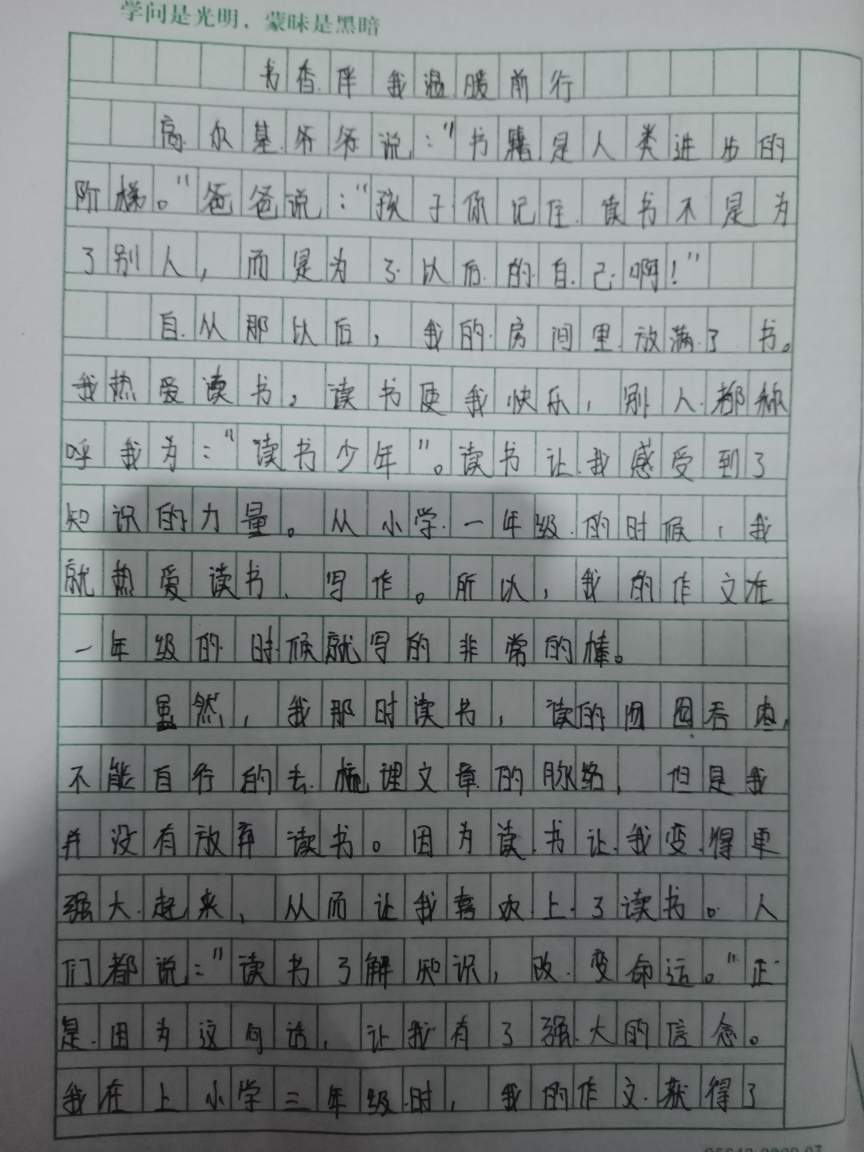 学问是光明，蒙昧是黑暗
书香伴我温暖前行
高尔基爷爷说：“书籍是人类进步的
阶梯。”爸爸说：“孩子你记住 读书不是为
了别人，而是为了以后的自己啊！”
自从那以后，我的房间里放满了书。
我热爱读书，读书使我快乐，别人都称
呼我为：“读书少年”。读书让我感受到了
知识的力量。从小学一年级的时候，我
就热爱读书、写作。所以，我的作文在
一年级的时候就写的非常的棒。
虽然，我那时读书，读的囫囵吞枣，
不能自行的去梳理文章的脉络，但是我
并没有放弃读书。因为读书让我变得更
强大起来，从而让我喜欢上了读书。人
们都说：“读书了解知识，改变命运。”正
是因为这句话，让我有了强大的信念。
我在上小学三年级时，我的作文获得了